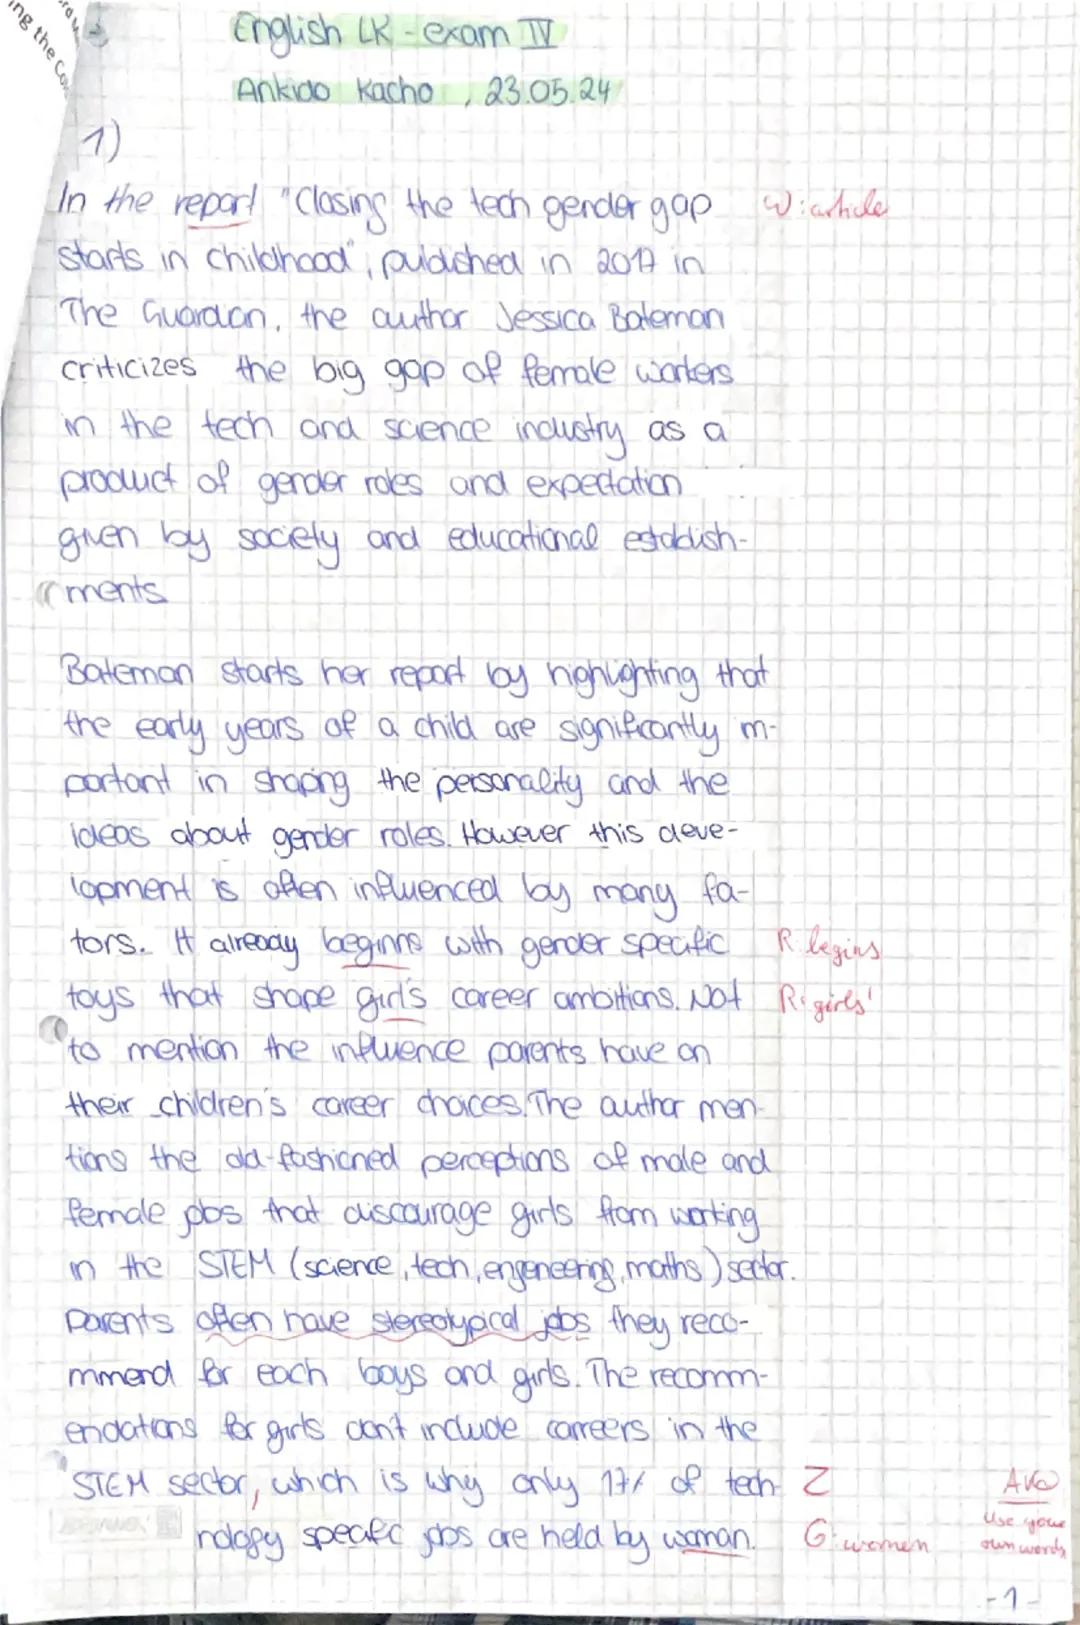 ing the Co
English LK - exam IV
Ankido Kacho, 23.05.24
1)
In the report "Closing the tech gender gap W: article
starts in childhood", published in 2017 in
The Guardian, the author Jessica Bateman
criticizes the big gap of female workers
in the tech and science industry as a
product of gender roles and expectation
given by society and educational establish-
ments
Bateman starts her report by highlighting that
the early years of a child are significantly im-
portant in shaping the personality and the
ideas about gender roles. However this deve-
lopment is often influenced by many fa-
tors. It already beginns with gender specific R: begins
toys that shape girl's career ambitions. Not R: girls'
to mention the influence parents have on
their children's career choices. The author men-
tions the old-fashioned perceptions of male and
female jobs that discourage girls from working
in the STEM (science, tech, engeneering, maths) sector.
Parents often have stereotypical jobs they reco-
mmend for each boys and girls. The recomm-
endations for girls don't include carreers in the
STEM sector, which is why only 17% of tech- Z
nology specific jobs are held by woman. G: women
Use your
own words
-1-